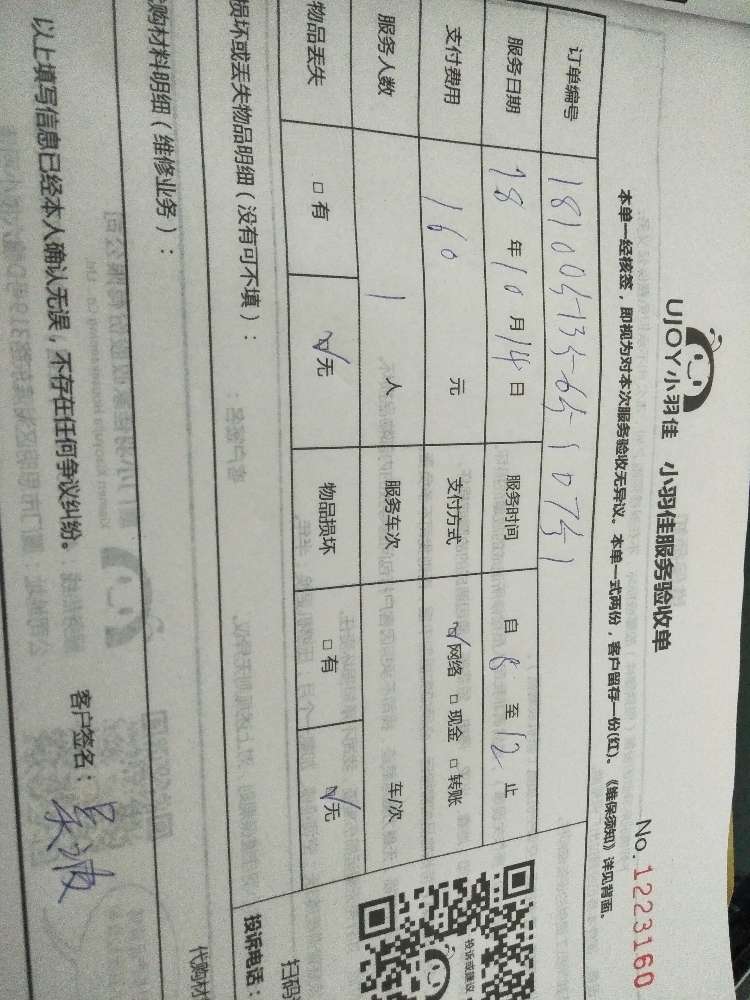 UJOY小羽佳 小羽佳服务验收单
No. 1223160
本单一经核签，即视为对本次服务验收无异议。本单一式两份，客户留存一份(红)。《维保须知》详见背面。
订单编号
服务日期 18 年 10 月 14 日 服务时间 自 8 至 12 止
支付费用 160 元 支付方式 ☑网络 □现金 □转账
服务人数 1 人 服务车次 车/次
物品丢失 □有 ☑无 物品损坏 □有 ☑无
损坏或丢失物品明细（没有可不填）：
购材料明细（维修业务）：
以上填写信息已经本人确认无误，不存在任何争议纠纷。 客户签名：
投诉或建议
扫码
投诉电话：
代购材